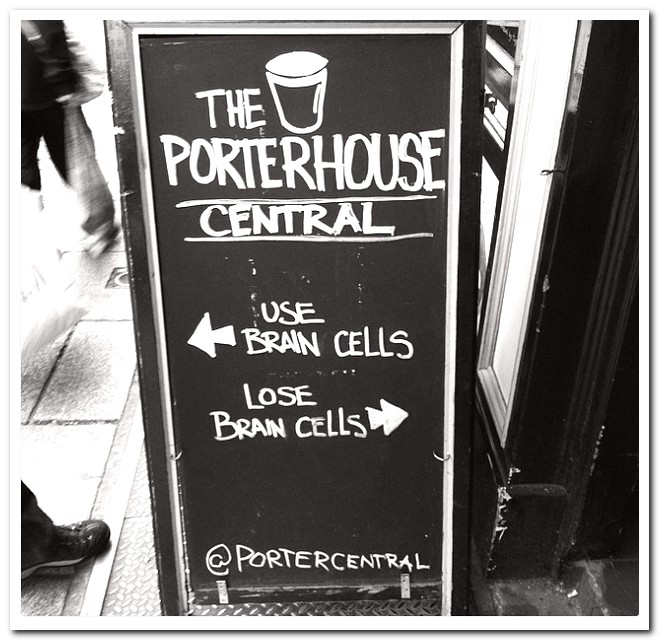 THE
PORTERHOUSE
CENTRAL
USE
BRAIN CELLS
LOSE
BRAIN CELLS
@PORTERCENTRAL